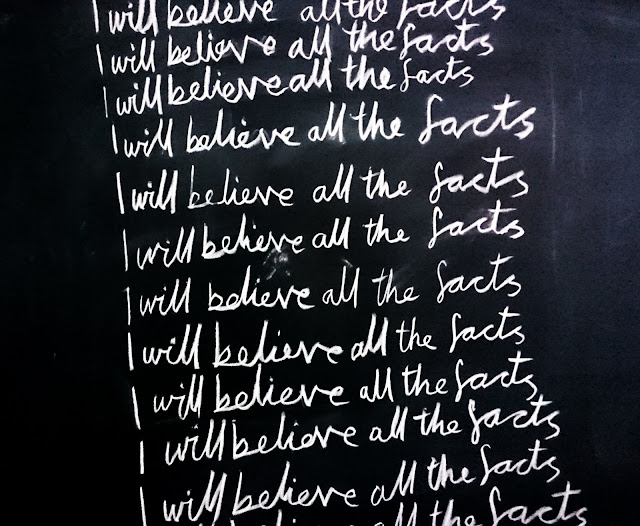 I will believe all the facts
I will believe all the facts
I will believe all the facts
I will believe all the facts
I will believe all the facts
I will believe all the facts
I will believe all the facts
I will believe all the facts
I will believe all the facts
I will believe all the facts
I will believe all the facts
will believe all the facts